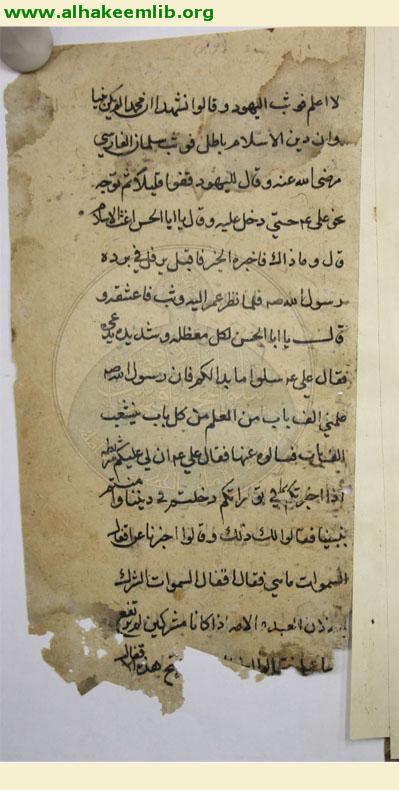 www.alhakeemlib.org
لا اعلم فوثب اليهود وقالوا نشهد ان محمدا لم يكن نبيا
وان دين الاسلام باطل فوثب سلمان الفارسي
رضي الله عنه وقال لليهود قفوا قليلا ثم توجه
نحو علي ع حتى دخل عليه وقال يا ابا الحسن اغث الاسلام
قال وماذاك فاخبره الخبر فاقبل يرفل في برده
رسول الله صه فلما نظر عمر اليه وثب فاعتنقه و
قالـ يا ابا الحسن لكل معظله وشده
فقال علي ع سلوا ما بدا لكم فان رسول الله صه
علمني الف باب من العلم من كل باب يتشعب
الف باب فسالوه عنها فقال علي ع ان لي عليكم شريطه
اذا اخبرتكم بما في توراتكم دخلتم في ديننا
فقالوا لك ذلك وقالوا اخبرنا عن اقفال
السموات ماهي فقال اقفال السموات الشرك
العبد و الامه اذا كانا مشركين لم يرتفع